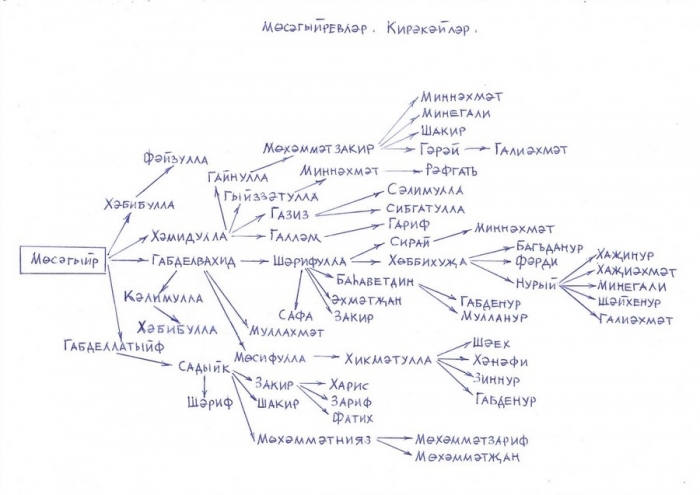 Мөсәгыйревләр. Кирәкәйләр.
Миннәхмәт
Минегали
Шакир
Мөхәммәтзакир
Гәрәй
Галиәхмәт
Фәйзулла
Гайнулла
Миннәхмәт
Рәфгать
Гыйззәтулла
Сәлимулла
Хәбибулла
Газиз
Сибгатулла
Гариф
Хәмидулла
Галләм
Миннәхмәт
Сирай
Багъданур
Мөсәгыйр
Габделвахид
Шәрифулла
Хөббихуҗа
Фәрди
Хаҗинур
Хаҗиәхмәт
Нурый
Минегали
Баһаветдин
Шәйхенур
Кәлимулла
Әхмәтҗан
Габденур
Галиәхмәт
Сафа
Закир
Мулланур
Хәбибулла
Муллахмәт
Габделлатыйф
Мөсифулла
Хикмәтулла
Шәех
Хәнәфи
Садыйк
Зиннур
Закир
Харис
Габденур
Шәриф
Шакир
Зариф
Фатих
Мөхәммәтнияз
Мөхәммәтзариф
Мөхәммәтҗан